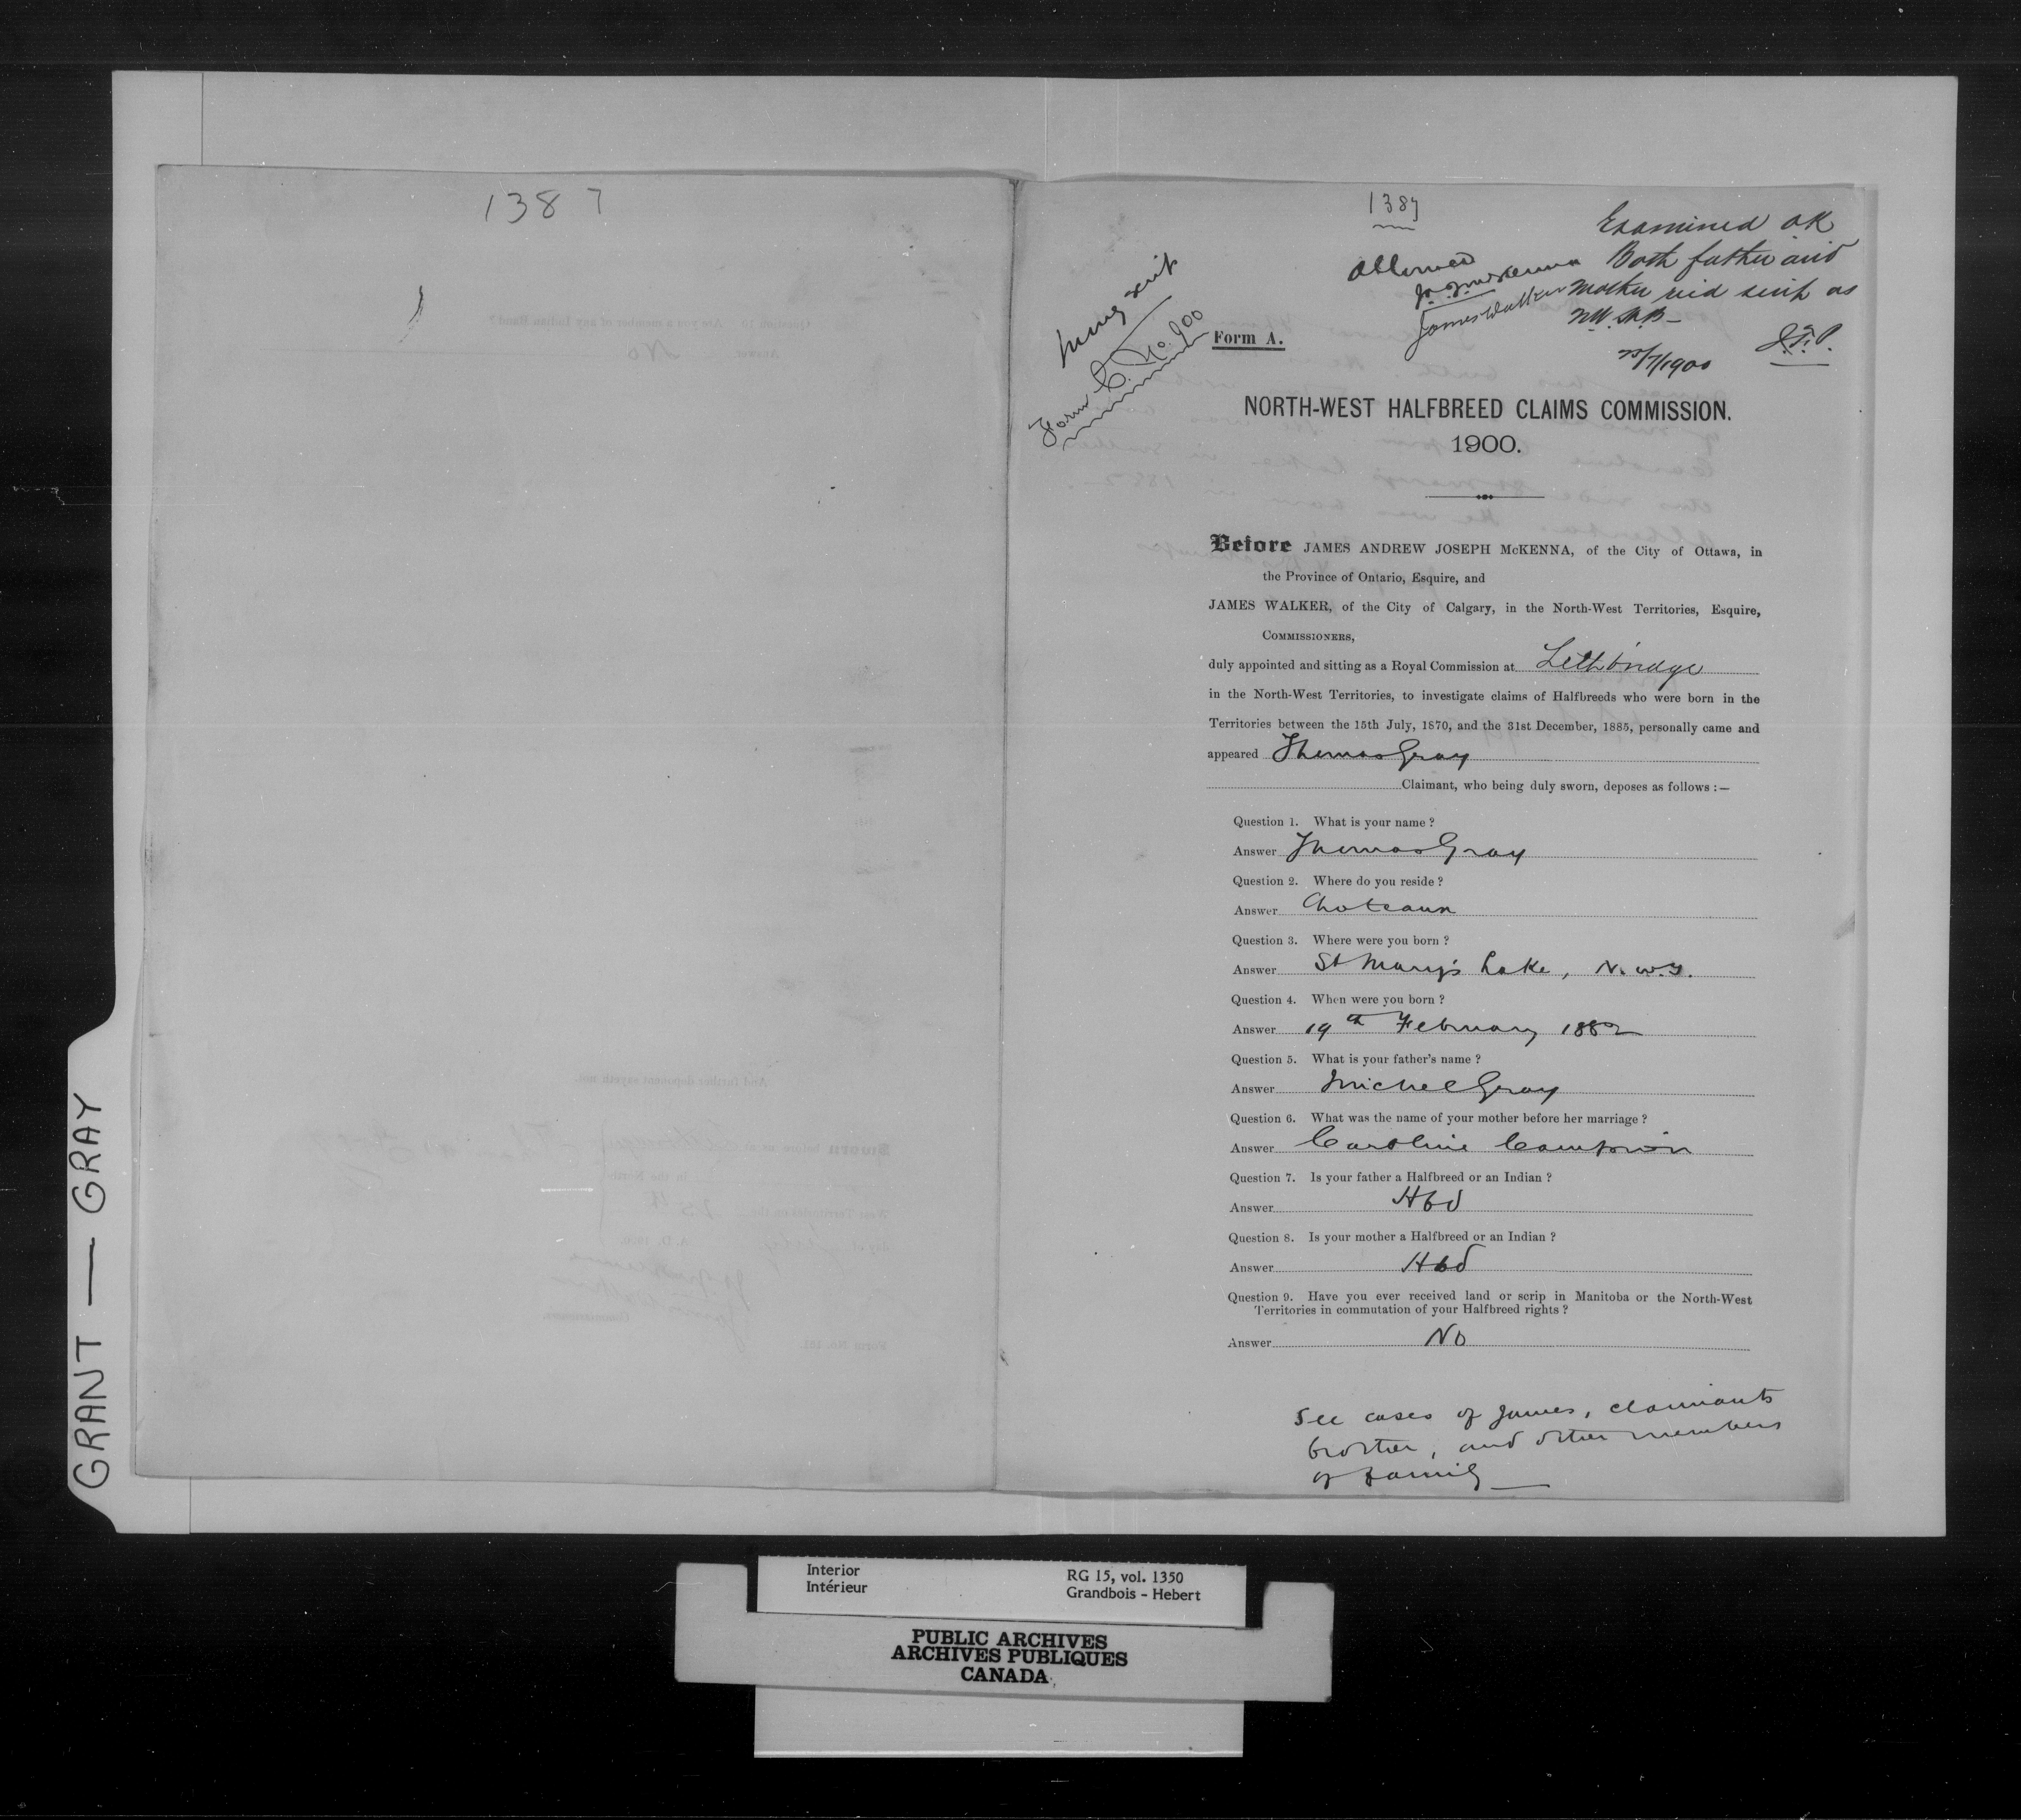 1387
1387
Examined OK
Both father and
mother recd scrip as
NW. H.B—
25/7/1900
J.E.P.
Allowed
J. A. J. McKenna
James Walker
scrip
Form C. No. 900
Form A.
NORTH-WEST HALFBREED CLAIMS COMMISSION.
1900.
Before JAMES ANDREW JOSEPH McKENNA, of the City of Ottawa, in
the Province of Ontario, Esquire, and
JAMES WALKER, of the City of Calgary, in the North-West Territories, Esquire,
COMMISSIONERS,
duly appointed and sitting as a Royal Commission at Lethbridge
in the North-West Territories, to investigate claims of Halfbreeds who were born in the
Territories between the 15th July, 1870, and the 31st December, 1885, personally came and
appeared Thomas Gray
Claimant, who being duly sworn, deposes as follows :—
Question 1. What is your name ?
Answer Thomas Gray
Question 2. Where do you reside ?
Answer Choteau
Question 3. Where were you born ?
Answer St Mary's Lake, N.W.T.
Question 4. When were you born ?
Answer 19th February 1882
Question 5. What is your father's name ?
Answer Michel Gray
Question 6. What was the name of your mother before her marriage ?
Answer Caroline
Question 7. Is your father a Halfbreed or an Indian ?
Answer Hbd
Question 8. Is your mother a Halfbreed or an Indian ?
Answer Hbd
Question 9. Have you ever received land or scrip in Manitoba or the North-West
Territories in commutation of your Halfbreed rights ?
Answer No
See cases of James, claimants
brother, and other members
of family—
GRANT — GRAY
Interior
Intérieur
RG 15, vol. 1350
Grandbois - Hebert
PUBLIC ARCHIVES
ARCHIVES PUBLIQUES
CANADA